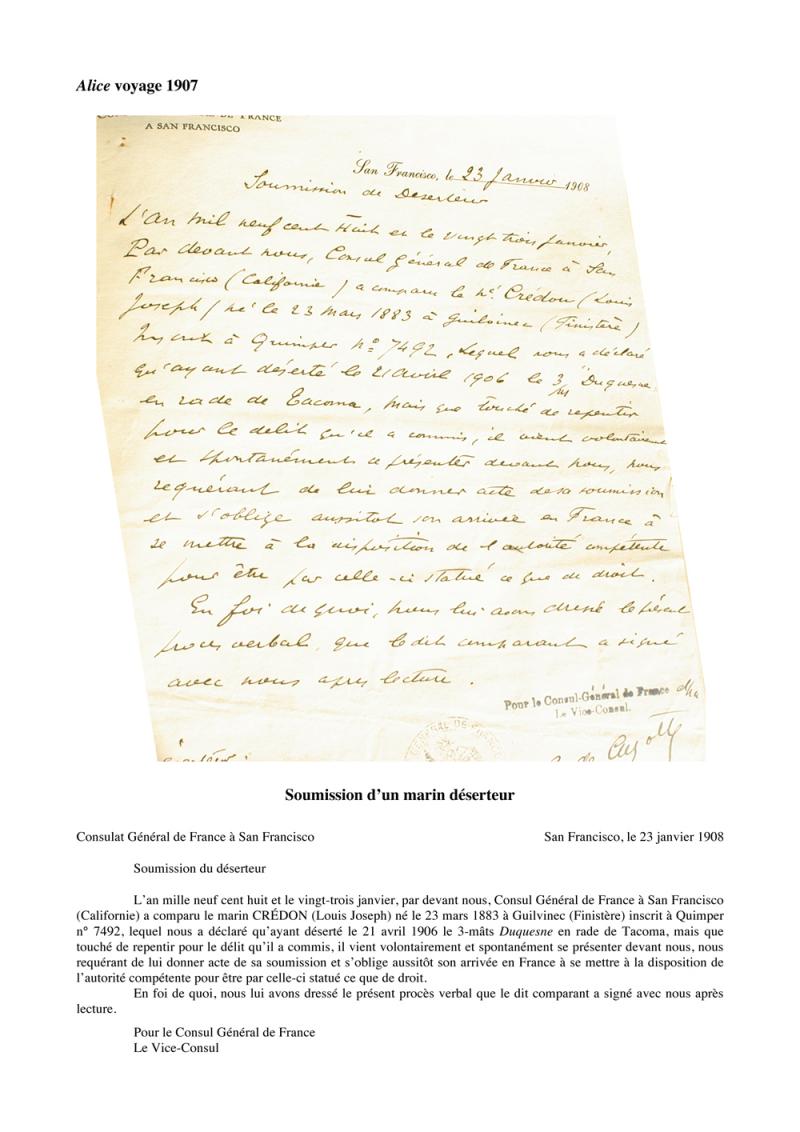 Alice voyage 1907
DE FRANCE
A SAN FRANCISCO
San Francisco, le 23 Janvier 1908
Soumission de Déserteur
L'An mil neuf cent Huit et le vingt trois janvier,
Par devant nous, Consul Général de France à San
Francisco (Californie) a comparu le né Crédon (Louis
Joseph) né le 23 Mars 1883 à Guilvinec (Finistère)
Inscrit à Quimper nº 7492, lequel nous a déclaré
qu'ayant déserté le 21 Avril 1906 le 3/m Duquesne
en rade de Tacoma, mais que touché de repentir
pour le délit qu'il a commis, il vient volontairement
et spontanément se présenter devant nous, nous
requérant de lui donner acte de sa soumission
et s'oblige aussitot son arrivée en France à
se mettre à la disposition de l'autorité compétente
pour être par celle-ci statué ce que de droit.
En foi de quoi, nous lui avons dressé le présent
procès verbal, que le dit comparant a signé
avec nous après lecture.
Pour le Consul-Général de France
Le Vice-Consul.
GÉNÉRAL DE FRANCE
Soumission d'un marin déserteur
Consulat Général de France à San Francisco San Francisco, le 23 janvier 1908
Soumission du déserteur
L'an mille neuf cent huit et le vingt-trois janvier, par devant nous, Consul Général de France à San Francisco
(Californie) a comparu le marin CRÉDON (Louis Joseph) né le 23 mars 1883 à Guilvinec (Finistère) inscrit à Quimper
n° 7492, lequel nous a déclaré qu'ayant déserté le 21 avril 1906 le 3-mâts Duquesne en rade de Tacoma, mais que
touché de repentir pour le délit qu'il a commis, il vient volontairement et spontanément se présenter devant nous, nous
requérant de lui donner acte de sa soumission et s'oblige aussitôt son arrivée en France à se mettre à la disposition de
l'autorité compétente pour être par celle-ci statué ce que de droit.
En foi de quoi, nous lui avons dressé le présent procès verbal que le dit comparant a signé avec nous après
lecture.
Pour le Consul Général de France
Le Vice-Consul